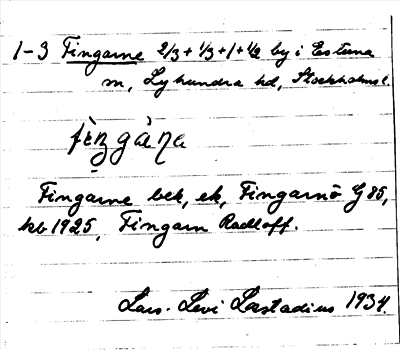 1-3 Fingarne 2/3 + 1/3 + 1 + 1/2 by i Estuna
sn, Lyhundra hd, Stockholms l.
fìŋgàṇa
Fingarne bek, ek, Fingarnö G 85,
kb 1925, Fingarn Radloff.
Lars-Levi Læstadius 1934.